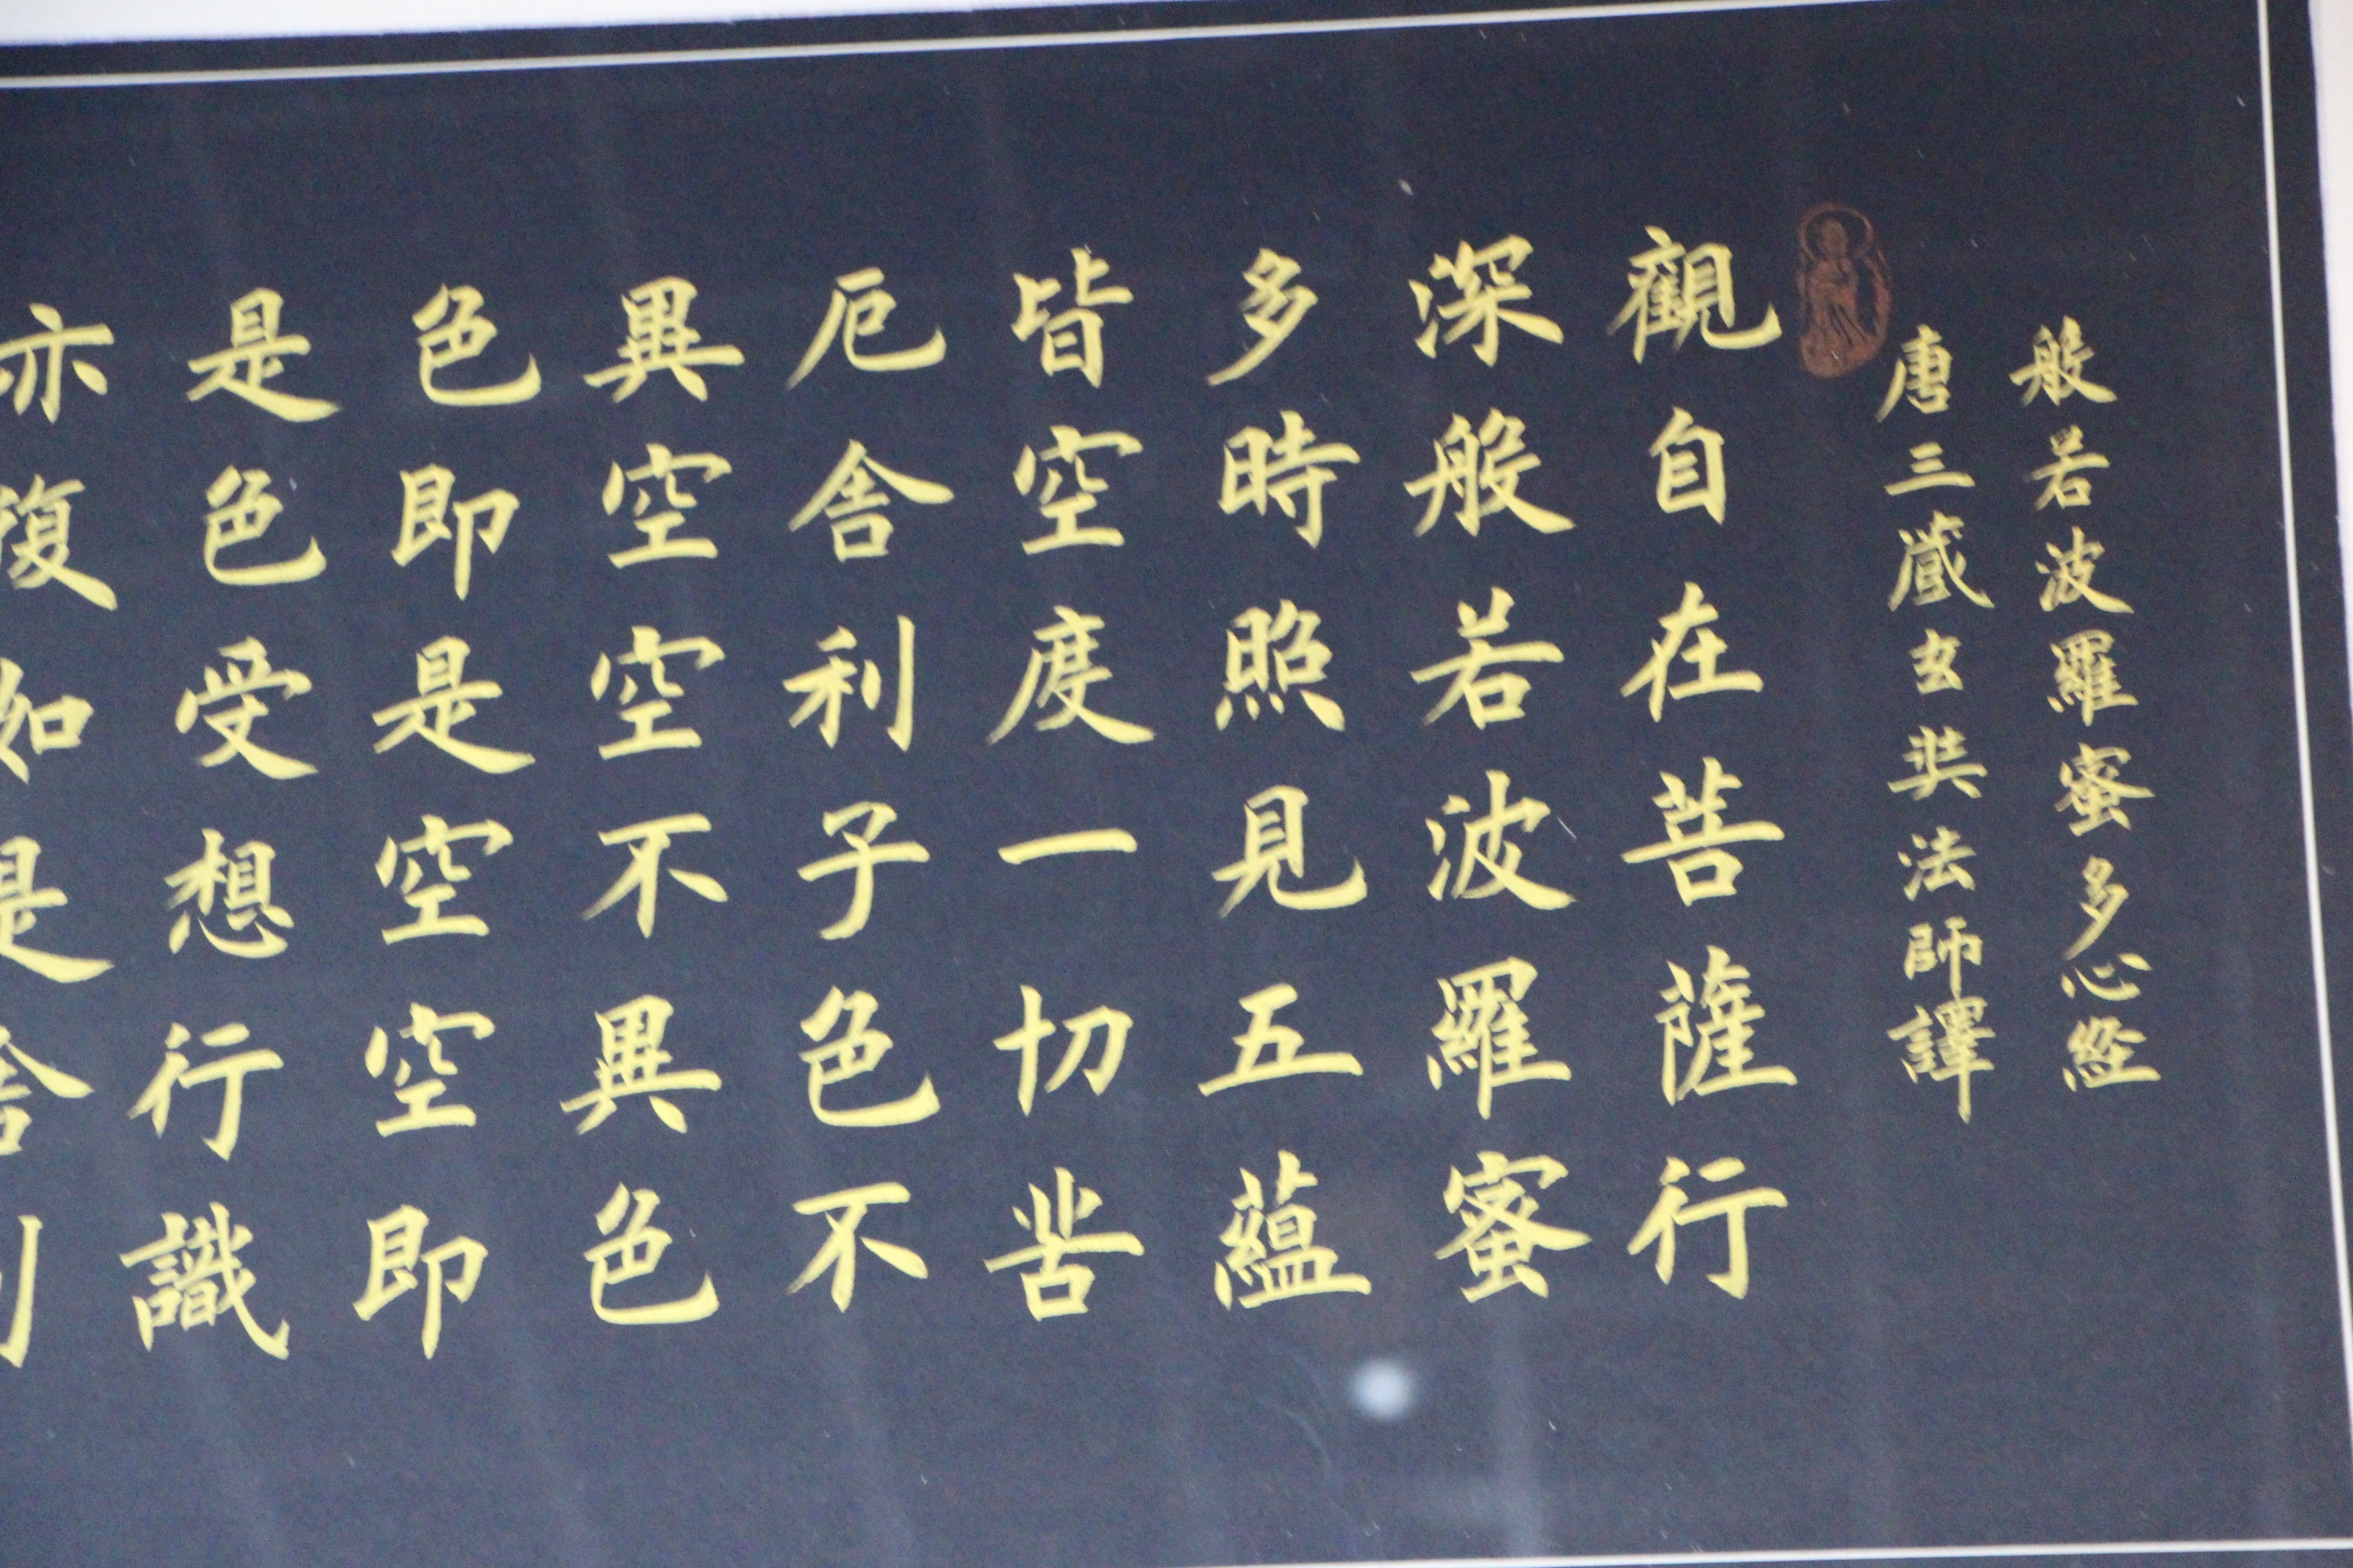 般若波羅蜜多心經
唐三藏玄奘法師譯
觀自在菩薩行
深般若波羅蜜
多時照見五蘊
皆空度一切苦
厄舍利子色不
異空空不異色
色即是空空即
是色受想行識
亦復如是舍利